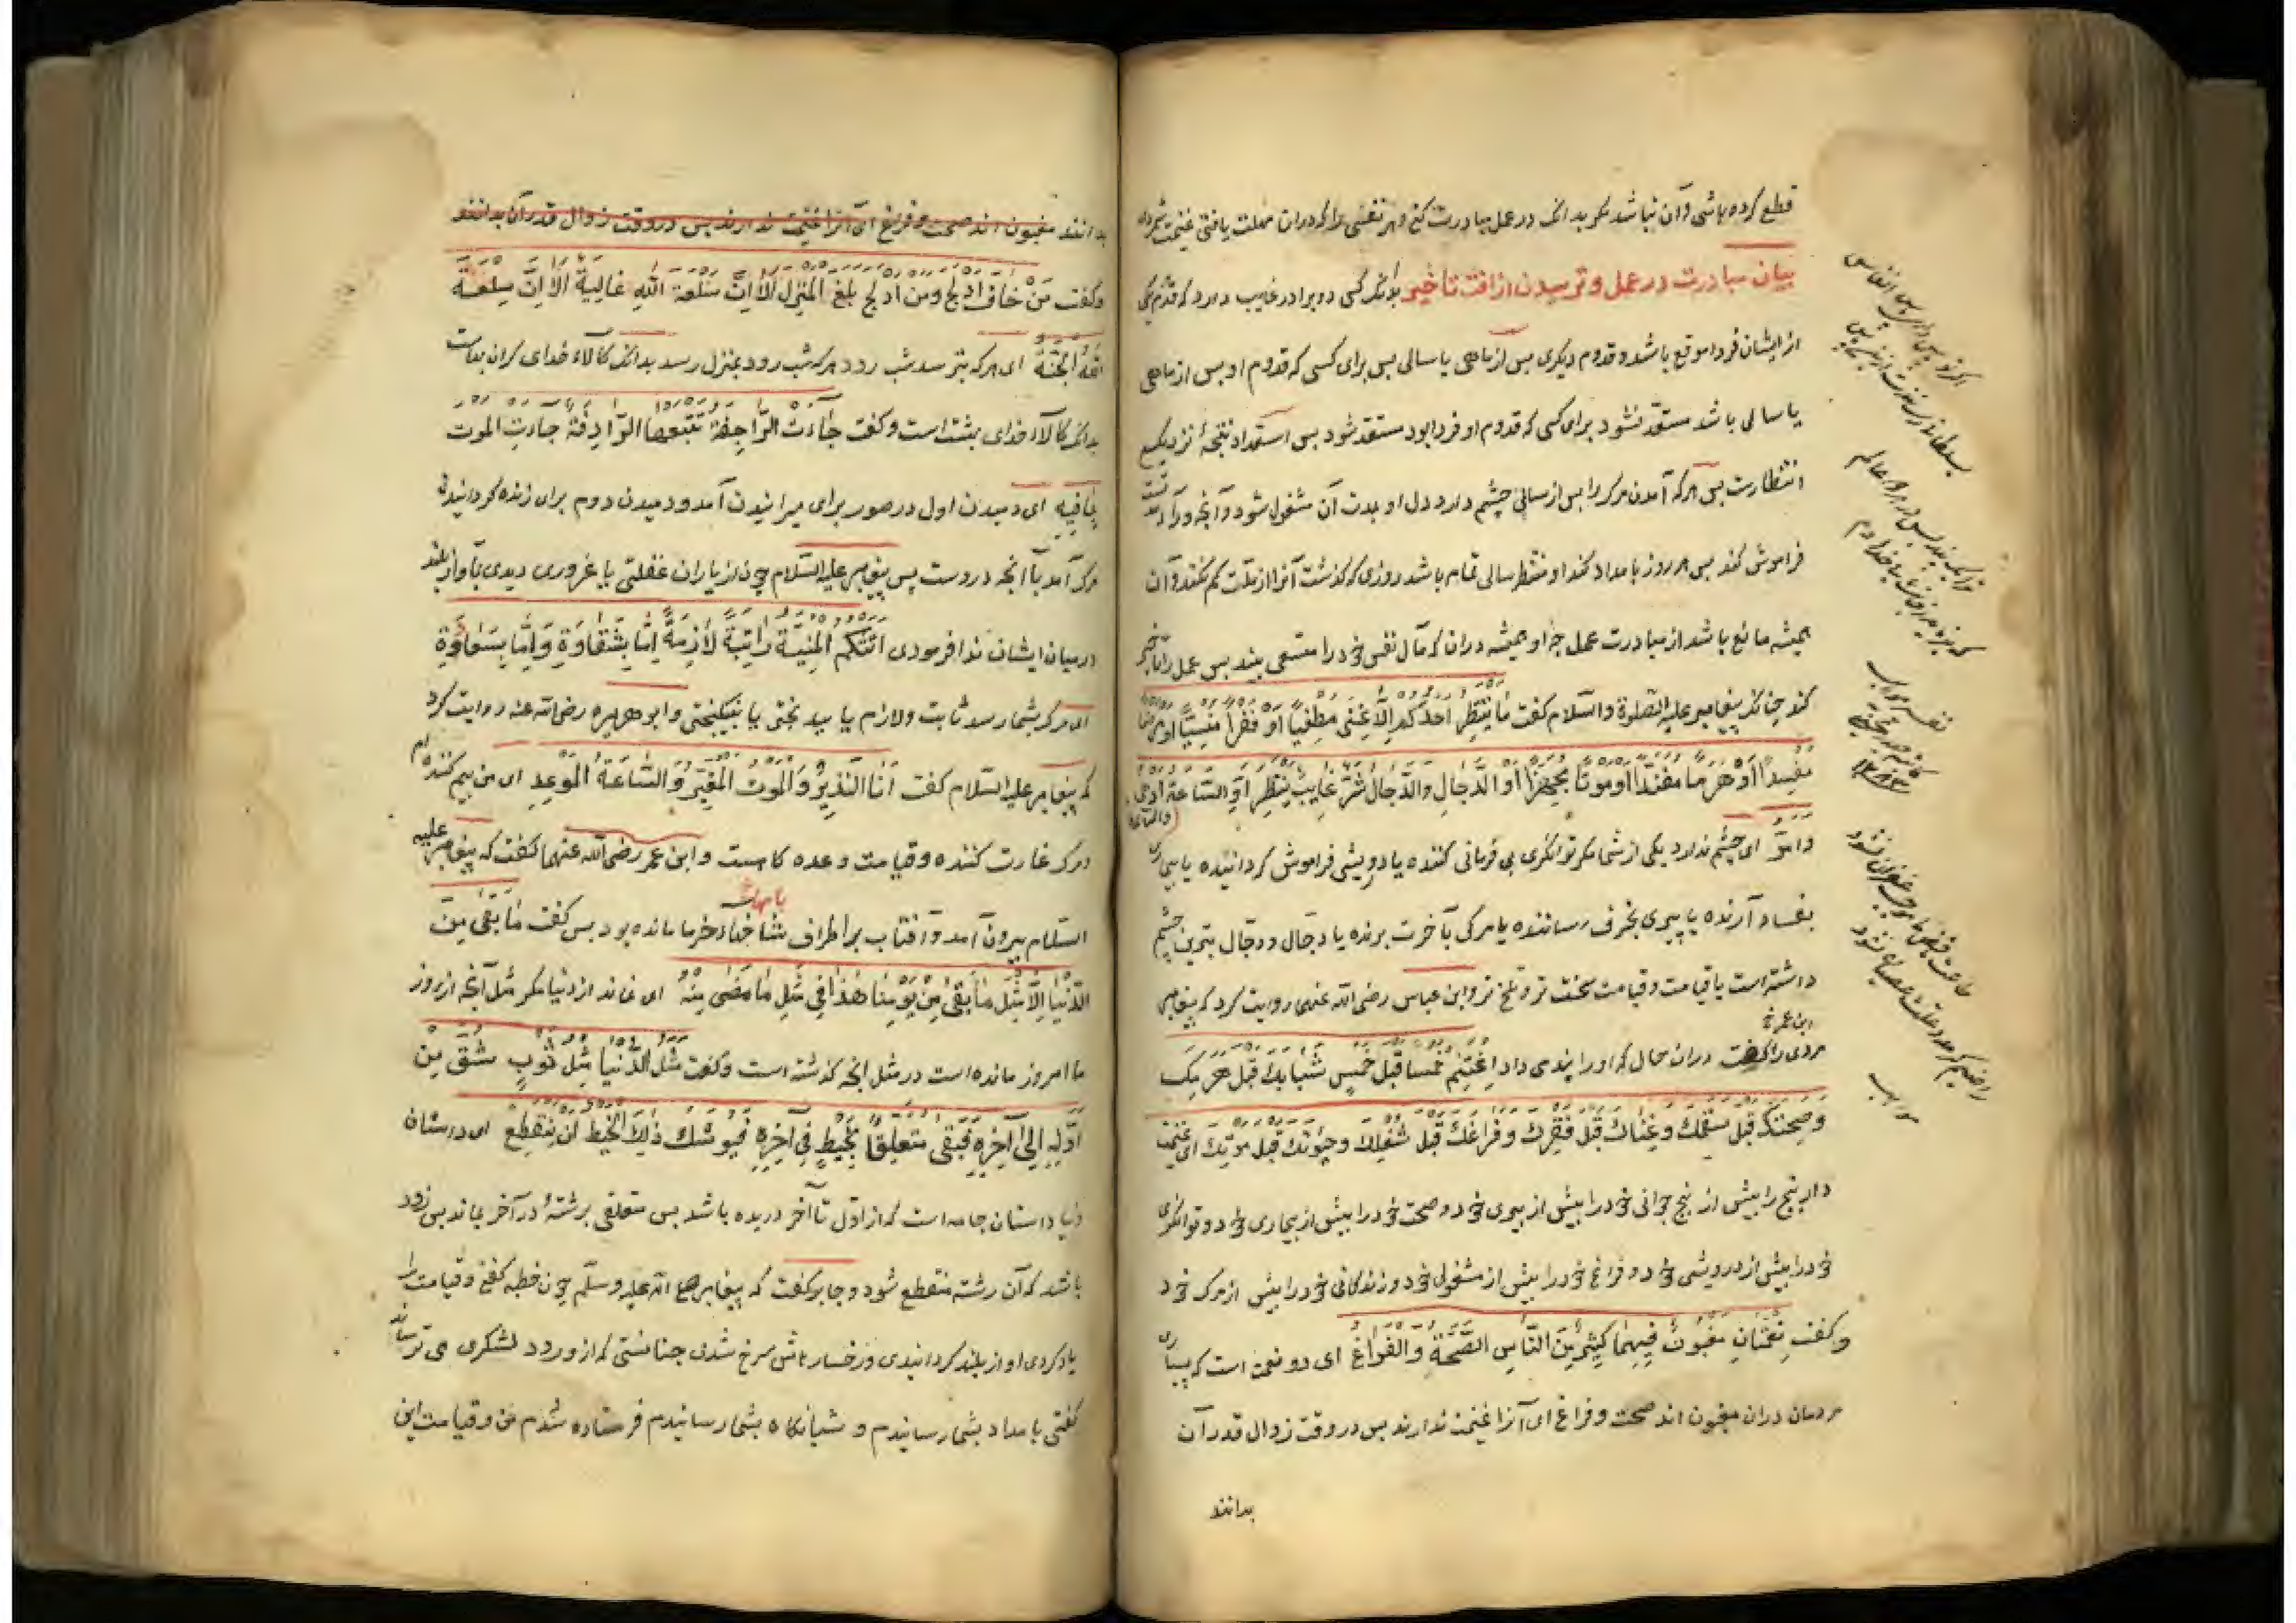 قطع کرده باشی و آن نباشد مگر بدانک در عمل مبادرت کنی و هر نفسی را که دران مهلت یافتی غنیمت شمرداری
بیان مبادرت در عمل و ترسیدن از آفت تأخیر بدانکه کسی دو برادر غایب دارد که قدوم یکی
از ایشان فردا موقع باشد و قدوم دیگری پس از ماهی یا سالی پس برای کسی که قدوم او پس از ماهی
یا سالی باشد مستعدّ نشود برای کسی که قدوم او فردا بود مستعد شود پس استعداد نتیجهٔ نزدیکی
انتظارست پس هرکه آمدن مرک را پس از سالی چشم دارد دل او بمدت آن مشغول شود و آنچه ورآء مدتست
فراموش کند پس هر روز بامداد کند او منتظر سالی تمام باشد روزی که گذشت آنرا از مدّت کم نکند و آن
همیشه مانع باشد از مبادرت عمل چه او همیشه دران که مآل نفس خود را متسعی بیند پس عمل را تاخیر
کند چنانکه پیغامبر علیه الصلوة والسّلام کفت مَا یَنْتَظِرُ اَحَدُکُم اِلَّا غِنًی مُطْغِیًا اَوْ فَقْرًا مُنْسِیًا اَوْ مَرَضًا
مُفْسِدًا اَوْ هَرَمًا مُفَنِّدًا اَوْ مَوْتًا مُجْهِزًا اَوِ الدَّجَّالَ والدَّجَّالُ شَرُّ غَایِبٍ یُنْتَظَرُ اَوِ السَّاعَةَ اَدْهَی
والساعة
وامرّ ای چشم ندارد یکی از شما مکر توانگری بی فرمانی کننده یا درویشی فراموش کرداننده یا بیماری
بفساد آرنده یا پیری بخرف رساننده یا مرکی بآخرت برنده یا دجّال و دجّال بترین چشم
داشته است یا قیامت و قیامت سخت تر و تلخ تر و ابن عباس رضی الله عنهما روایت کرد که پیغامبر
ابن عمر خ
مردی را کفت دران حال که او را پندی داد اِغْتَنِمْ خَمْسًا قَبْلَ خَمْسٍ شَبَابَکَ قَبْلَ هَرَمِکَ
وَصِحَّتَکَ قَبْلَ سَقَمِکَ وَغِنَاکَ قَبْلَ فَقْرِکَ وَفَرَاغَکَ قَبْلَ شُغْلِکَ وَحَیٰوتَکَ قَبْلَ مَوْتِکَ ای غنیمت
دار پنج را پیش از پنج جوانی خود را پیش از پیری خود و صحت خود را پیش از بیماری خود و توانگری
خود را پیش از درویشی خود و فراغ خود را پیش از مشغولی خود و زندکانی خود را پیش از مرک خود
وکفت نِعْمَتَانِ مَغْبُونٌ فِیهِمَا کَثِیرٌ مِنَ النَّاسِ الصِّحَّةُ وَالْفَرَاغُ ای دو نعمت است که بسیاری
مردمان دران مغبون اند صحت و فراغ ای آنرا غنیمت ندارند پس در وقت زوال قدر آن
بدانند
بدانند مغبون اند صحت و فراغ ای آنرا غنیمت ندارند پس در وقت زوال قدر آن بدانند
وکفت مَنْ خَافَ اَدْلَجَ وَمَنْ اَدْلَجَ بَلَغَ الْمَنْزِلَ اَلَا اِنَّ سِلْعَةَ اللهِ غَالِیَةٌ اَلَا اِنَّ سِلْعَةَ
اللهِ الْجَنَّةُ ای هرکه بترسد شب رود هرکه شب رود بمنزل رسد بدانک کالاء خدای کران بهاست
بدانک کالاء خدای بهشت است وکفت جَاءَتِ الرَّاجِفَةُ تَتْبَعُهَا الرَّادِفَةُ جَاءَتِ الموت
بِمَا فِیهِ ای دمیدن اول در صور برای میرانیدن آمد و دمیدن دوم برای زنده کردانیدن
مرک آمد با آنچه دروست پس پیغامبر علیه السّلام چون از یاران غفلتی یا غروری دیدی بآواز بلند
درمیان ایشان ندا فرمودی اَتَتْکُمُ الْمَنِیَّةُ رَاتِبَةً لَازِمَةً اِمَّا بِشَقَاوَةٍ وَاِمَّا بِسَعَادَةٍ
ای مرک بشما رسد ثابت ولازم یا ببدبختی یا بنیکبختی و ابو هریره رضی الله عنه روایت کرد
که پیغامبر علیه السّلام کفت اَنَا النَّذِیرُ وَالْمَوْتُ الْمُغِیرُ وَالسَّاعَةُ الْمَوْعِدُ ای من بیم کننده ام
و مرک غارت کننده و قیامت وعده کاهست و ابن عمر رضی الله عنهما کفت که پیغامبر علیه
السّلام بیرون آمد و آفتاب بر اطراف شاخهاء خرما مانده بود پس کفت مَا بَقِیَ مِنَ
الدُّنْیَا اِلَّا مِثْلُ مَا بَقِیَ مِنْ یَوْمِنَا هٰذَا فِی مِثْلِ مَا مَضَی مِنْهُ ای نماند از دنیا مکر مثل آنچه از روز
ما امروز مانده است در مثل انچه کذشته است وکفت مَثَلُ الدُّنْیَا مَثَلُ ثَوْبٍ شُقَّ مِنْ
اَوَّلِهِ اِلَی آخِرِهِ فَبَقِیَ مُتَعَلِّقًا بِخَیْطٍ فِی آخِرِهِ فَیُوشِکُ ذٰلِکَ الْخَیْطُ اَنْ یَنْقَطِعَ ای داستان
دنیا داستان جامه است که از اوّل تا آخر دریده باشد پس متعلق برشتهٔ در آخر بماند پس زود
باشد که آن رشته منقطع شود و جابر کفت که پیغامبر صلی الله علیه وسلّم چون خطبه کفتی و قیامت را
یاد کردی اواز بلند کردانیدی و رخسارهاش سرخ شدی چنانستی که از ورود لشکری می ترساند
کفتی بامداد بشما رسانیدم و شبانکاه بشما رسانیدم فرستاده شدم من و قیامت این